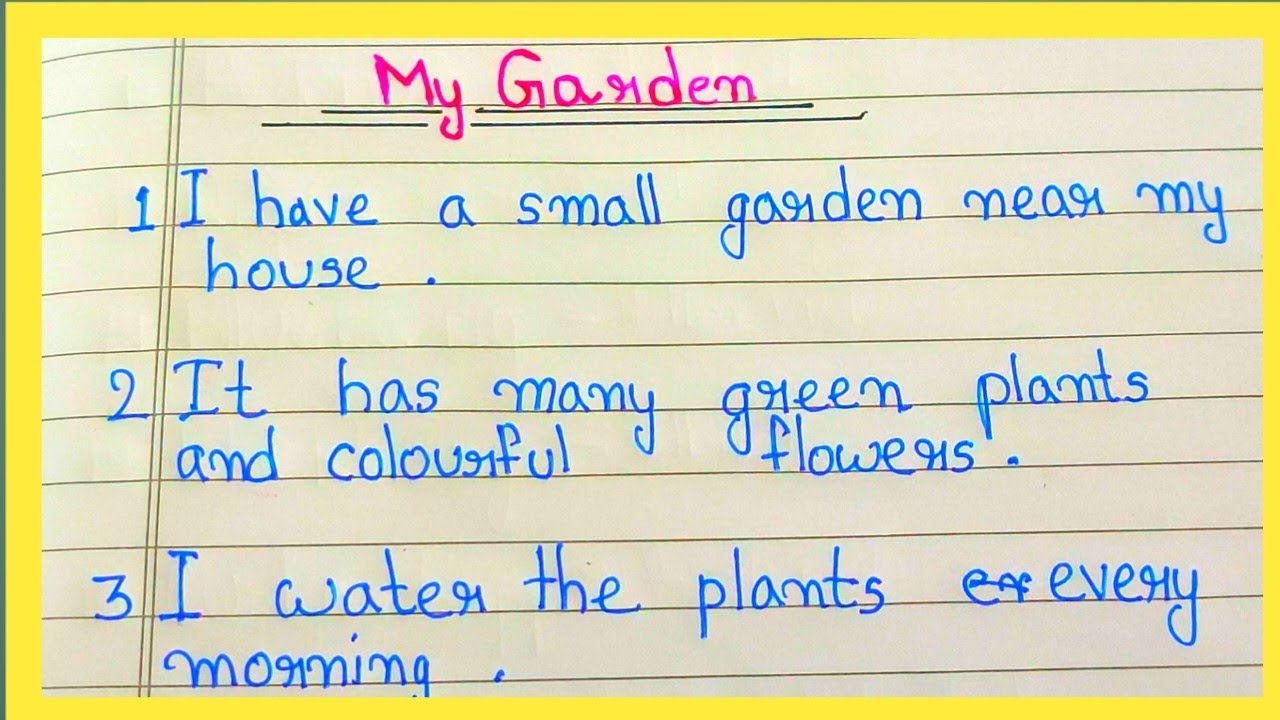 My Garden
1 I have a small garden near my
house .
2 It has many green plants
and colourful flowers .
3 I water the plants every
morning .